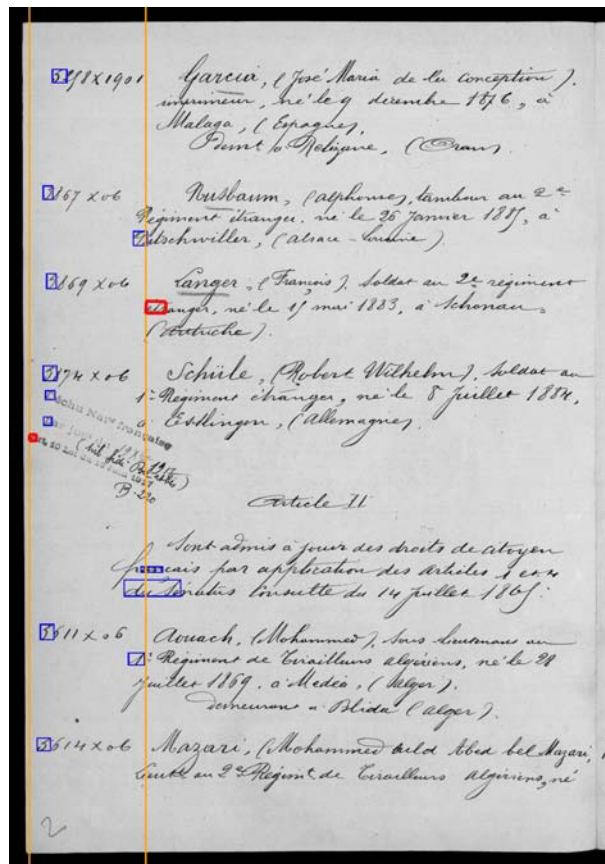 5758 X 1901 Garcia, (José Maria de la Conception).
imprimeur, né le 9 décembre 1876, à
Malaga, (Espagne),
Demt à Relizane, (Oran)
3867 X 06 Nusbaum, (Alphonse), tambour au 2e
Régiment étranger, né le 26 Janvier 1885, à
(Alsace-Lorraine).
3869 X 06 Langer, (François), Soldat au 2e régiment
étranger, né le 15 mai 1883, à Schonau,
(Autriche).
3874 X 06 Schüle, (Robert Wilhelm), Soldat au
1er Régiment étranger, né le 8 Juillet 1884,
à Esslingen, (Allemagne)
échu Natté française
par jugt
B. 220
Article II
Sont admis à jouir des droits de citoyen
français par application des articles 1 et 4
du Sénatus Consulte du 14 Juillet 1865:
3611 X 06 Aouach, (Mohammed), Sous lieutenant au
1er Régiment de Tirailleurs algériens, né le 28
Juillet 1869, à Medea, (Alger).
demeurant à Blida (Alger).
3614 X 06 Mazari, (Mohammed ould Abed bel Mazari,
Lieutt au 2e Régimt de Tirailleurs algériens, né
2